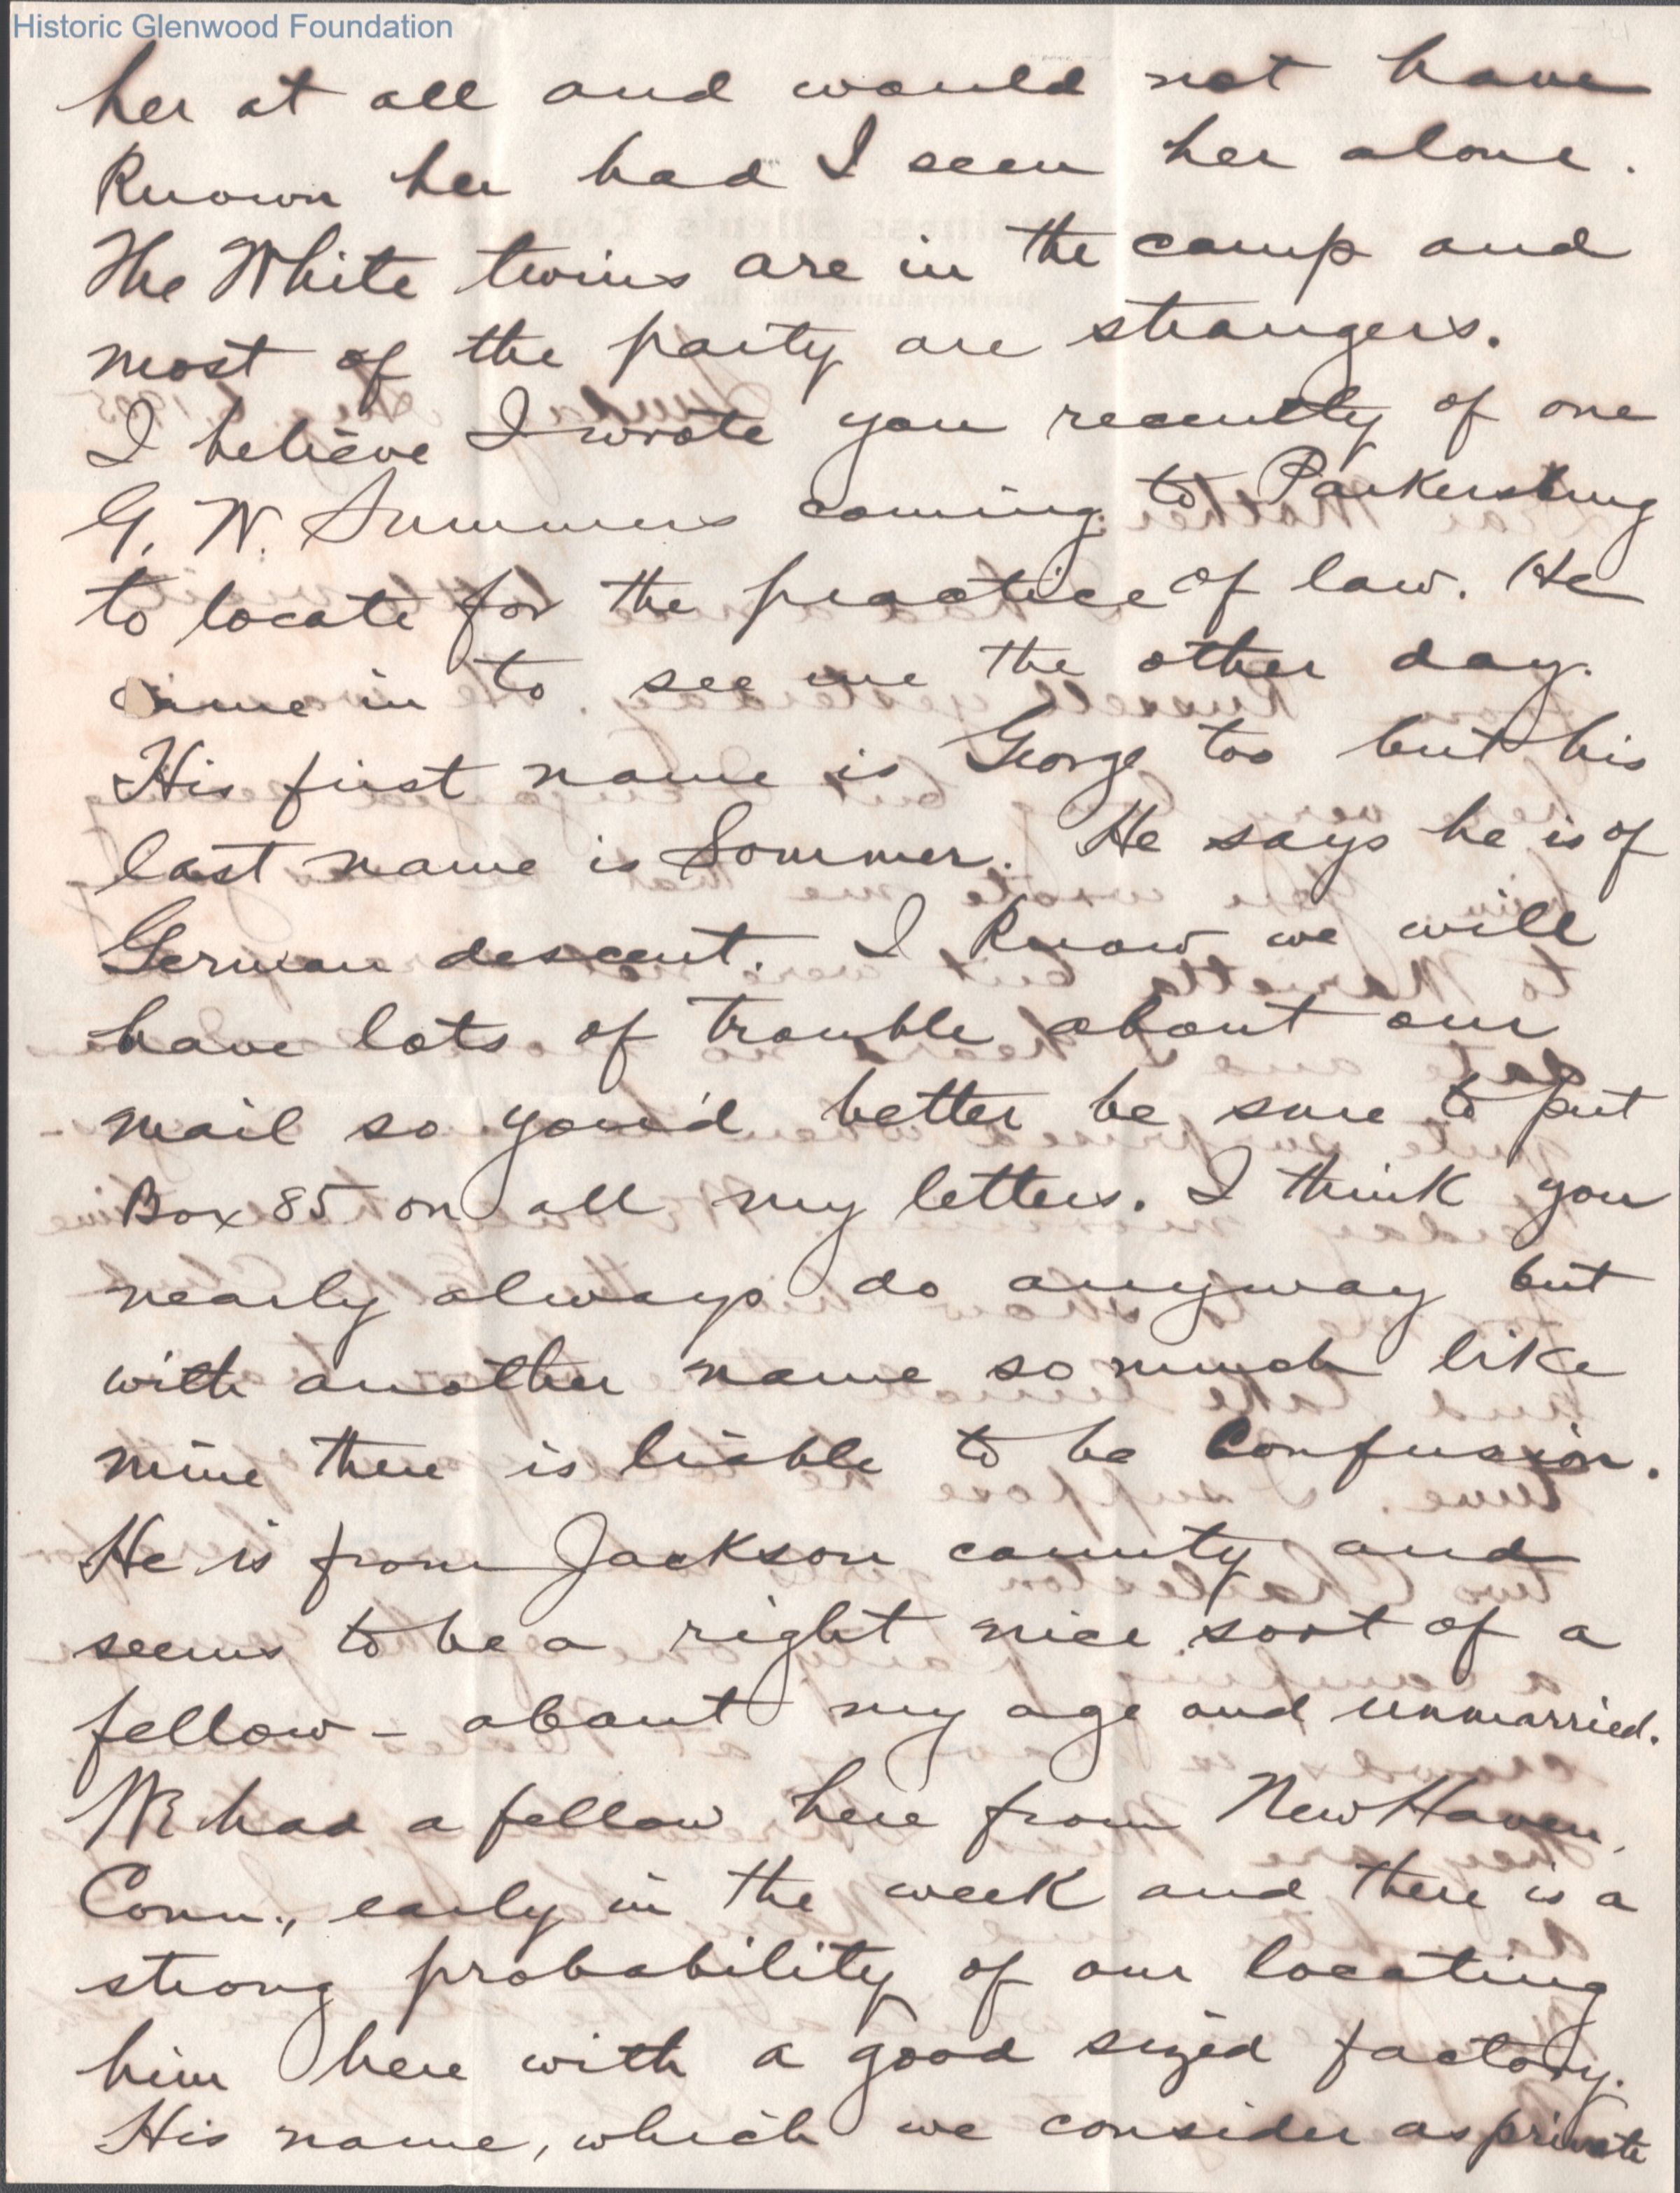 Historic Glenwood Foundation
her at all and would not have
known her had I seen her alone.
The White twins are in the camp and
most of the party are strangers.
I believe I wrote you recently of one
G. W. Summers coming to Parkersburg
to locate for the practice of law. He
came in to see me the other day.
His first name is George too but his
last name is Sommer. He says he is of
German descent. I know we will
have lots of trouble about our
mail so you'd better be sure to put
Box 85 on all my letters. I think you
nearly always do anyway but
with another name so much like
mine there is liable to be confusion.
He is from Jackson county and
seems to be a right nice sort of a
fellow - about my age and unmarried.
We had a fellow here from New Haven,
Conn., early in the week and there is a
strong probability of our locating
him here with a good sized factory.
His name, which we consider as private